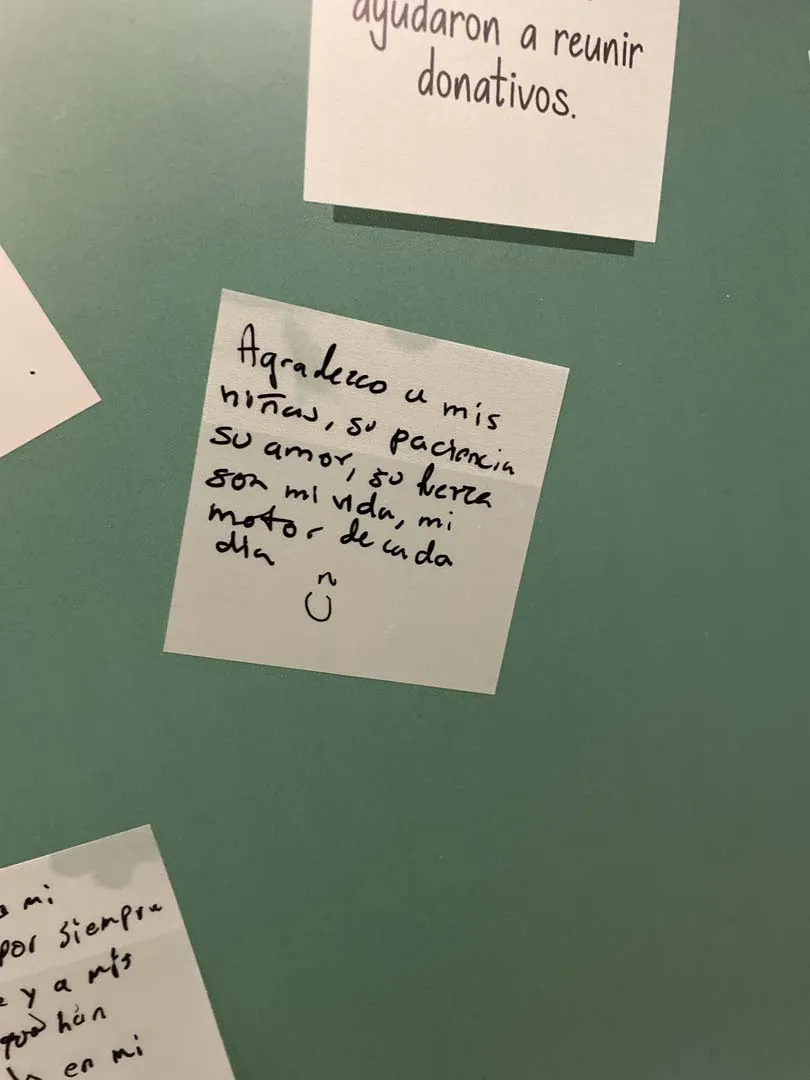 ayudaron a reunir
donativos.
Agradezco a mis
niñas, su paciencia
su amor, su fuerza
son mi vida, mi
motor de cada
día
mi
por siempre
y a mis
que hán
en mi